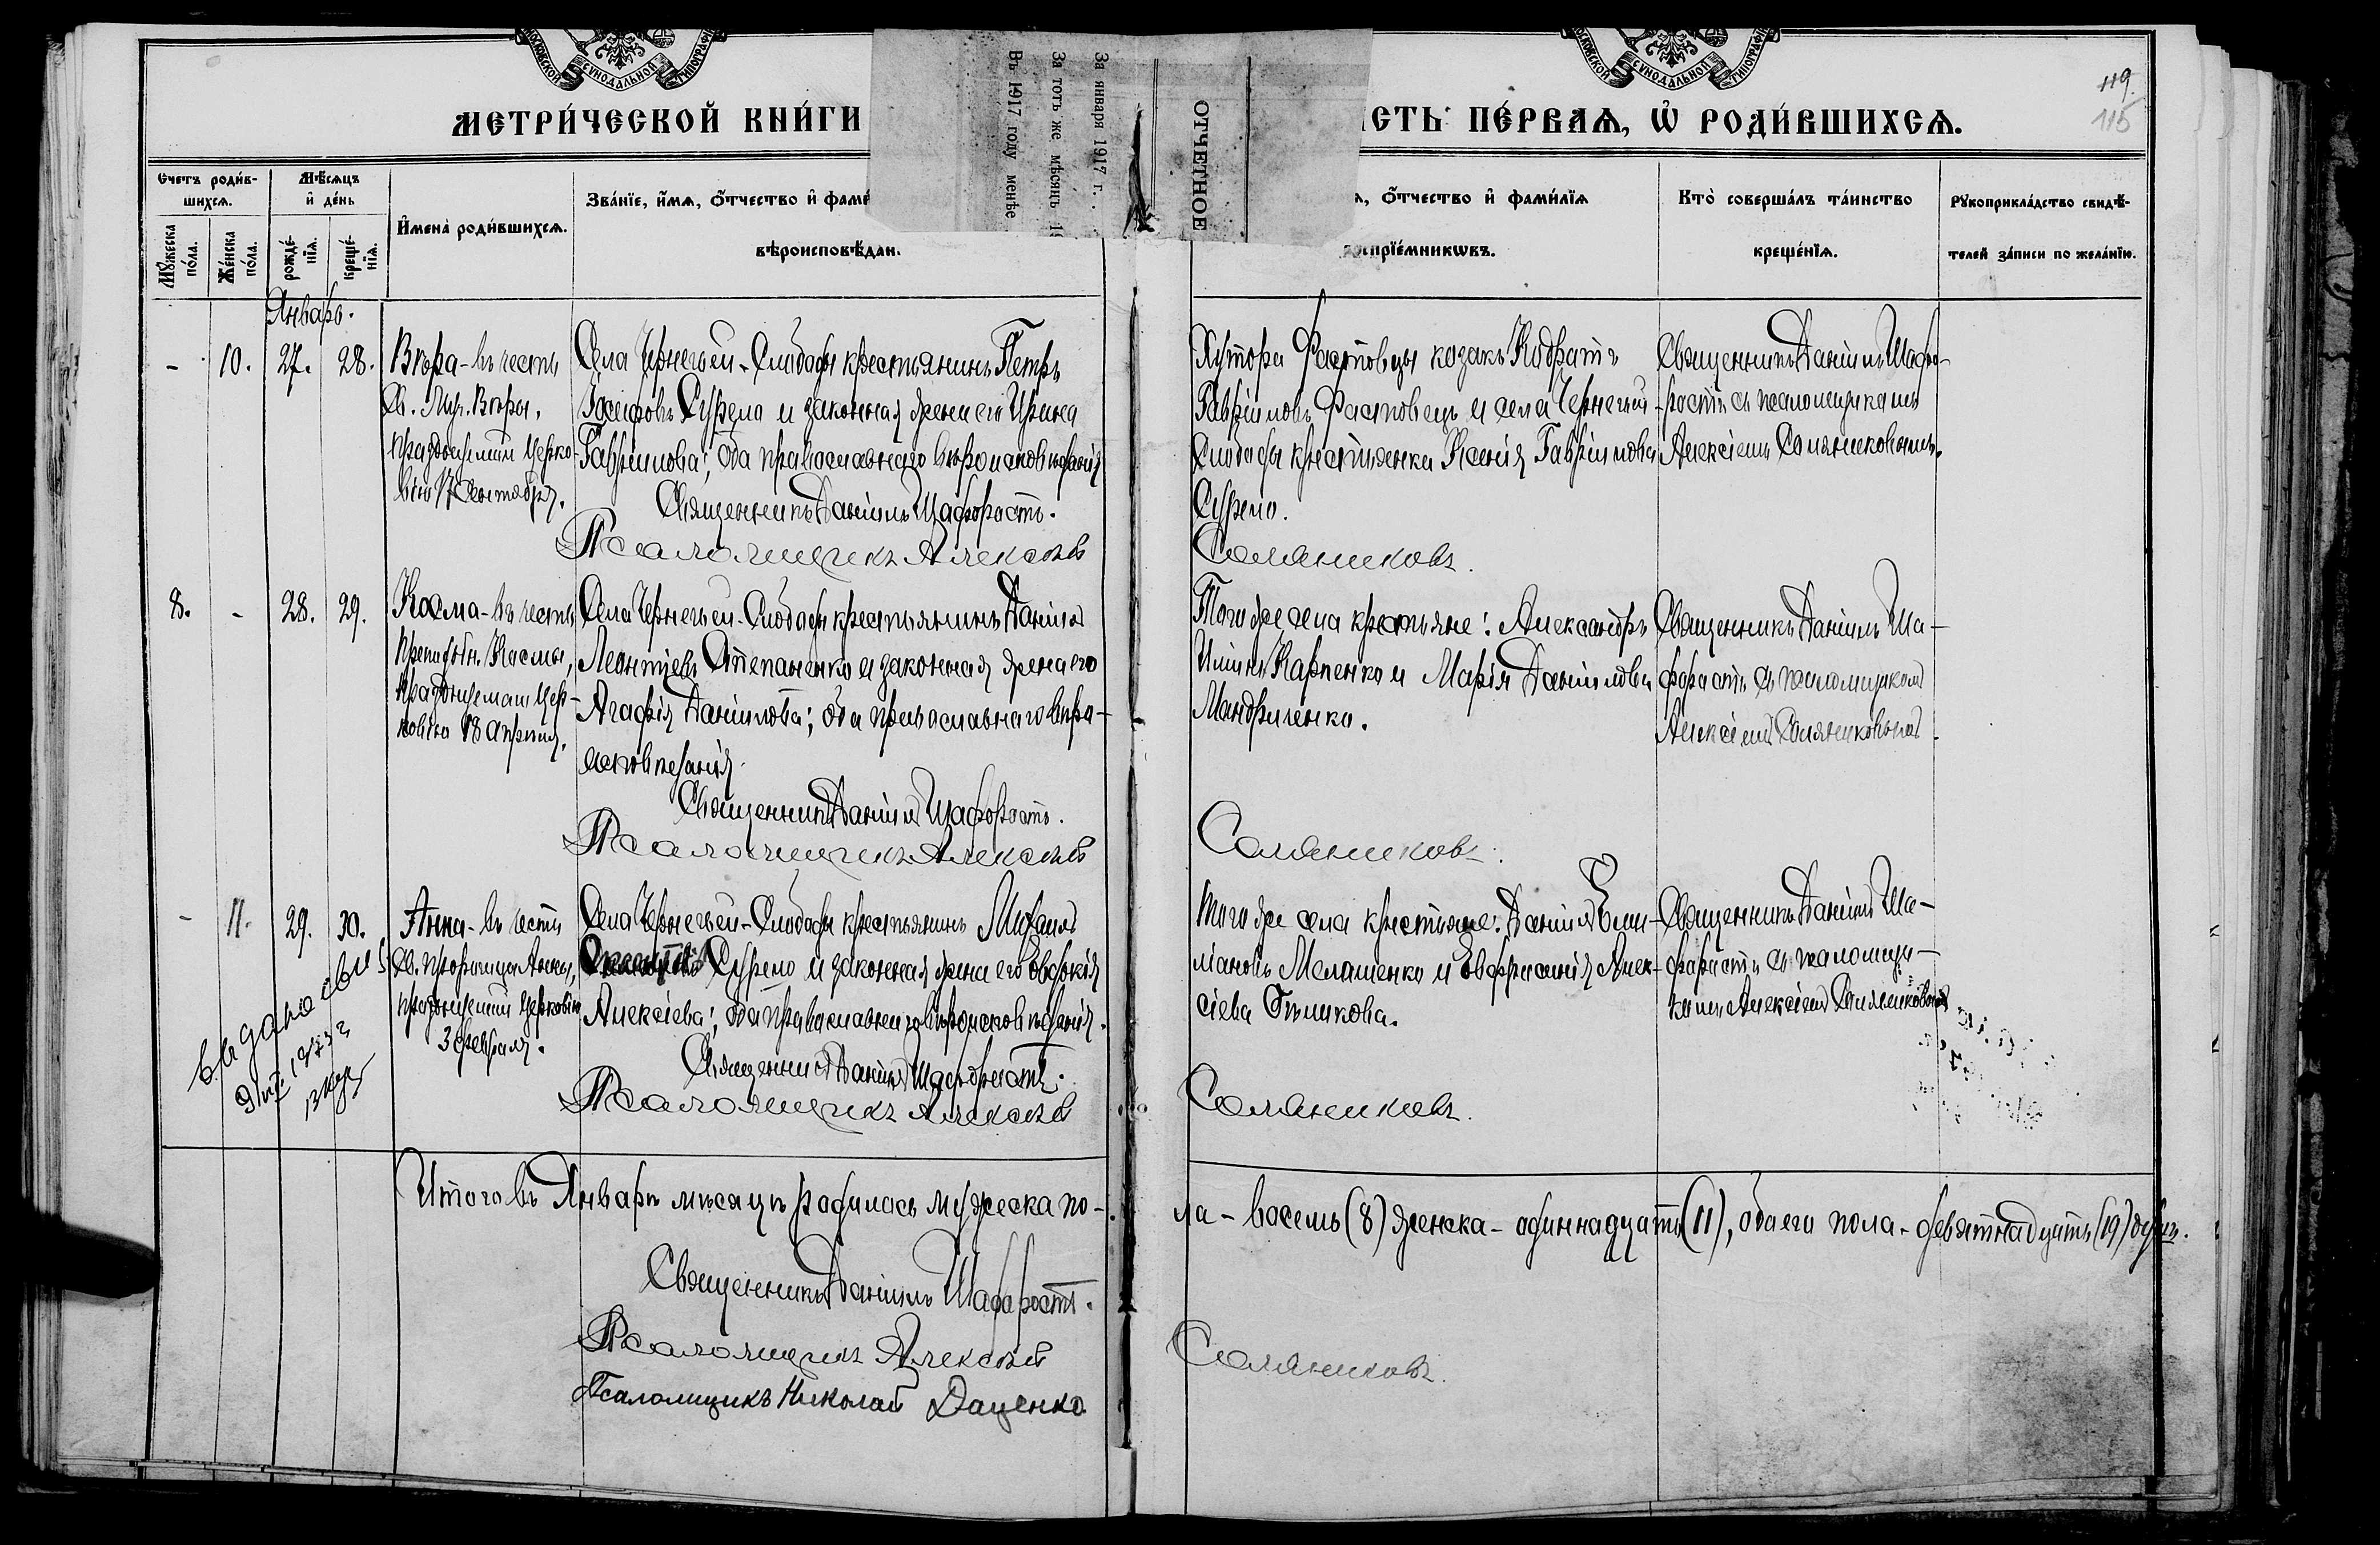 МОСКОВСКОЙ СУНОДАЛЬНОЙ ТИПОГРАФІ
МОСКОВСКОЙ СУНОДАЛЬНОЙ ТИПОГРАФІ
МЕТРИ́ЧЕСКОЙ КНИ́ГИ
СТЬ ПЕ́РВАѦ, Ѡ҆ РОДИ́ВШИХСѦ.
119.
115
Въ 1917 году менѣе
За тотъ же мѣсяцъ 19
За января 1917 г.
ОТЧЕТНОЕ
Счетъ роди́в-
шихсѧ.
Мꙋ́жеска по́ла.
Же́нска по́ла.
Мѣ́сѧцъ
и҆ де́нь
рожде́-нїѧ.
креще́-нїѧ.
И҆мена̀ роди́вшихсѧ.
Зва́нїе, и҆́мѧ, о҆́тчество и҆ фамі
вѣроисповѣ́дан.
ѧ, о҆́тчество и҆ фами́лїѧ
спрїе́мникѡвъ.
Кто̀ соверша́лъ та́инство
креще́нїѧ.
Рꙋкоприкла́дство свидѣ́-
телей за́писи по жела́нїю.
Январь.
- 10. 27. 28.
Вѣра - въ честь
Св. Муч. Вѣры,
празднуемой Церко-
вію 17 Сентября.
Села Чернечьей-Слободы крестьянинъ Петръ
Іосифовъ Сурело и законная жена его Ирина
Гавріилова; оба православнаго вѣроисповѣданія
Священникъ Даніилъ Шафоростъ.
Псаломщикъ Алексѣй
Хутора Фастовцы козакъ Кодратъ
Гавріиловъ Фастовецъ и села Чернечьей
Слободы крестьянка Ксенія Гавріилова
Сурело.
Солянниковъ.
Священникъ Даніилъ Шафо-
ростъ съ псаломщикомъ
Алексіемъ Солянниковымъ.
8. - 28. 29.
Косма - въ честь
Преподобн. Космы,
празднуемаго Цер-
ковію 18 Апрѣля.
Села Чернечьей-Слободы крестьянинъ Даніилъ
Леонтіевъ Степаненко и законная жена его
Агафія Даніилова; оба православнаго вѣро-
исповѣданія.
Священникъ Даніилъ Шафоростъ.
Псаломщикъ Алексѣй
Того же села крестьяне: Александръ
Ильинъ Карпенко и Марія Даніилова
Мандриченко.
Солянниковъ.
Священникъ Даніилъ Ша-
форостъ съ псаломщикомъ
Алексіемъ Солянниковымъ.
- 11. 29. 30.
Анна - въ честь
Св. пророчицы Анны,
празднуемой Церковію
3 февраля.
выдано
Села Чернечьей-Слободы крестьянинъ Михаилъ
Сурело и законная жена его Евдокія
Алексіева; оба православнаго вѣроисповѣданія.
Священникъ Даніилъ Шафоростъ.
Псаломщикъ Алексѣй
Того же села крестьяне: Даніилъ Еми-
ліановъ Мелашенко и Евфросинія Алек-
сіева Бѣликова.
Солянниковъ.
Священникъ Даніилъ Ша-
форостъ съ псаломщи-
комъ Алексіемъ Солянниковымъ
Итого въ Январѣ мѣсяцѣ родилось мужеска по-
ла - восемь (8) женска - одиннадцать (11), обоего пола - девятнадцать (19) душъ.
Священникъ Даніилъ Шафоростъ.
Псаломщикъ Алексѣй
Солянниковъ.
Псаломщикъ Николай Даценко